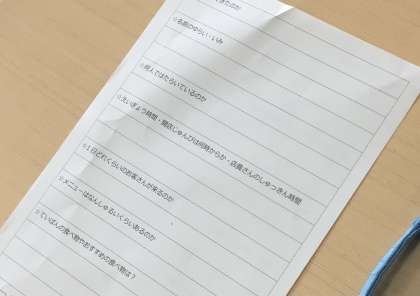 きたのか
☆名前のゆらい・いみ
☆何人ではたらいているのか
☆えいぎょう時間・開店じゅんびは何時からか・店員さんのしゅっきん時間
☆1日どれくらいのお客さんが来るのか
☆メニューはなんしゅるいくらいあるのか
☆ていばんの食べ物やおすすめの食べ物は？